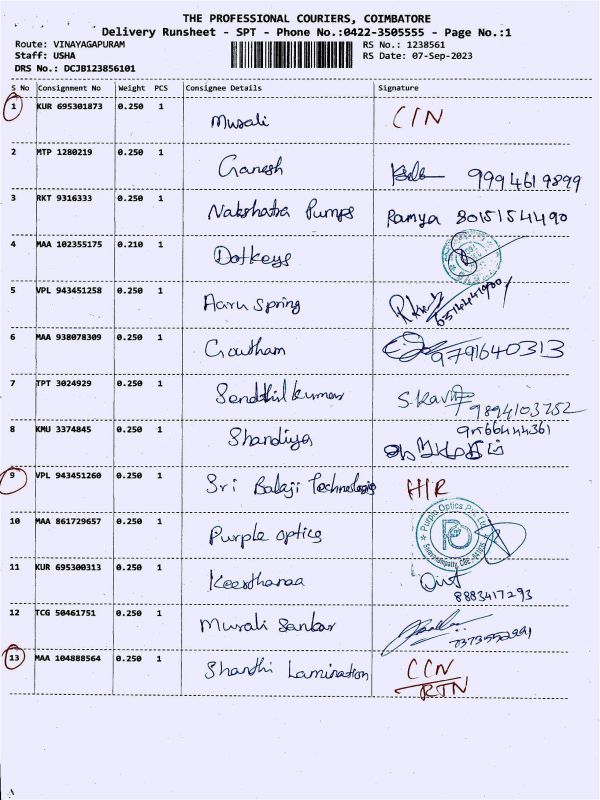 THE PROFESSIONAL COURIERS, COIMBATORE
Delivery Runsheet - SPT - Phone No.:0422-3505555 - Page No.:1
Route: VINAYAGAPURAM RS No.: 1238561
Staff: USHA RS Date: 07-Sep-2023
DRS No.: DCJB123856101
S No Consignment No Weight PCS Consignee Details Signature
1 KUR 695301873 0.250 1 Murali C/N
2 MTP 1280219 0.250 1 Ganesh 9994619899
3 RKT 9316333 0.250 1 Nakshatra Pumps Ramya 8015154490
4 MAA 102355175 0.210 1 Dotkeys
5 VPL 943451258 0.250 1 Aaru spring
6 MAA 938078309 0.250 1 Goutham 9791640313
7 TPT 3024929 0.250 1 Senddhil kumar 9894103752
8 KMU 3374845 0.250 1 Shandiya 9566444361
9 VPL 943451260 0.250 1 Sri Balaji Technologies HIR
10 MAA 861729657 0.250 1 Purple optics Purple Optics Pvt Ltd
11 KUR 695300313 0.250 1 Keerthanaa 8883417293
12 TCG 50461751 0.250 1 Murali Sankar
13 MAA 104888564 0.250 1 Shanthi Lamination CCN
RTN